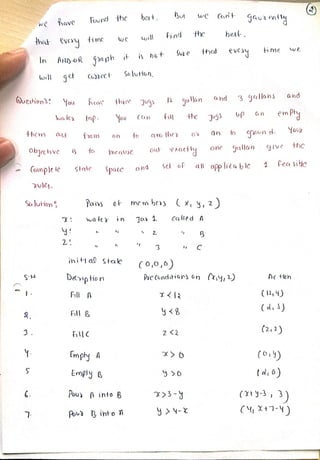 2
we have found the best. But we can't gaurantly
that every time we will find the best.
In AND OR graph it is not sure that every time we
will get correct solution.
Question 3: You have three jugs 12 gallon and 3 gallons and
water tap. You can fill the jugs up an empty
them out from on to another or on to ground. Your
Objective is to measure out exactly one gallon give the
- Complete state space and set of all applicable & feasible
rules.
Solution: Pairs of members (x, y, z)
x: water in Jar 1 called A
y: " " 2 " B
z: " " 3 " C
initial state (0,0,0)
S.N Description Pre Conditions on (x,y,z) Action
1. Fill A x<12 (12,4)
2. Fill B y<8
3. Fill C z<2 (2,2)
4 Empty A x>0 (0,y)
5 Empty B y>0 (x,0)
6. Pour A into B x>3-y (x+y-3, 3)
7. Pour B into A y>4-x (4, x+7-4)